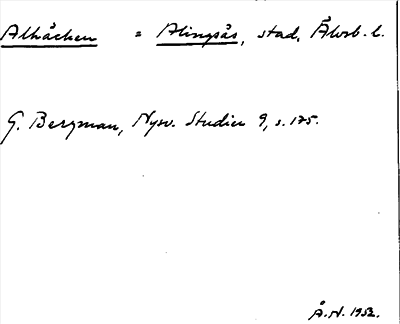 Alhäcken = Alingsås, stad, Älvsb. l.
G. Bergman, Nysv. Studier 9, s. 175.
Å.N. 1952.